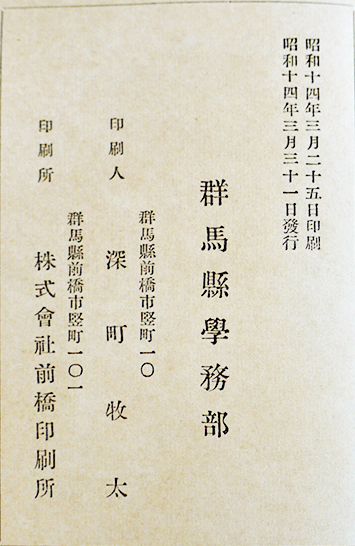 昭和十四年三月二十五日印刷
昭和十四年三月三十一日發行
群馬縣學務部
群馬縣前橋市竪町一〇
印刷人 深町牧太
群馬縣前橋市竪町一〇一
印刷所 株式會社前橋印刷所